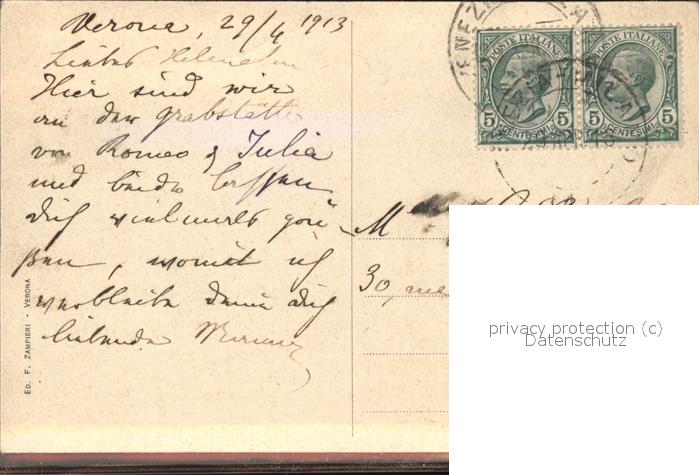 Verona, 29/4 1913
Liebes Helenchen
Hier sind wir
an der Grabstätte
von Romeo & Julia
und beide lassen
dich vielmals grü-
ßen, womit ich
verbleibe deine dich
liebende
ED. F. ZAMPIERI - VERONA
POSTE ITALIANE
5 5
CENTESIMI
POSTE ITALIANE
5 5
CENTESIMI
M
30,
privacy protection (c)
Datenschutz